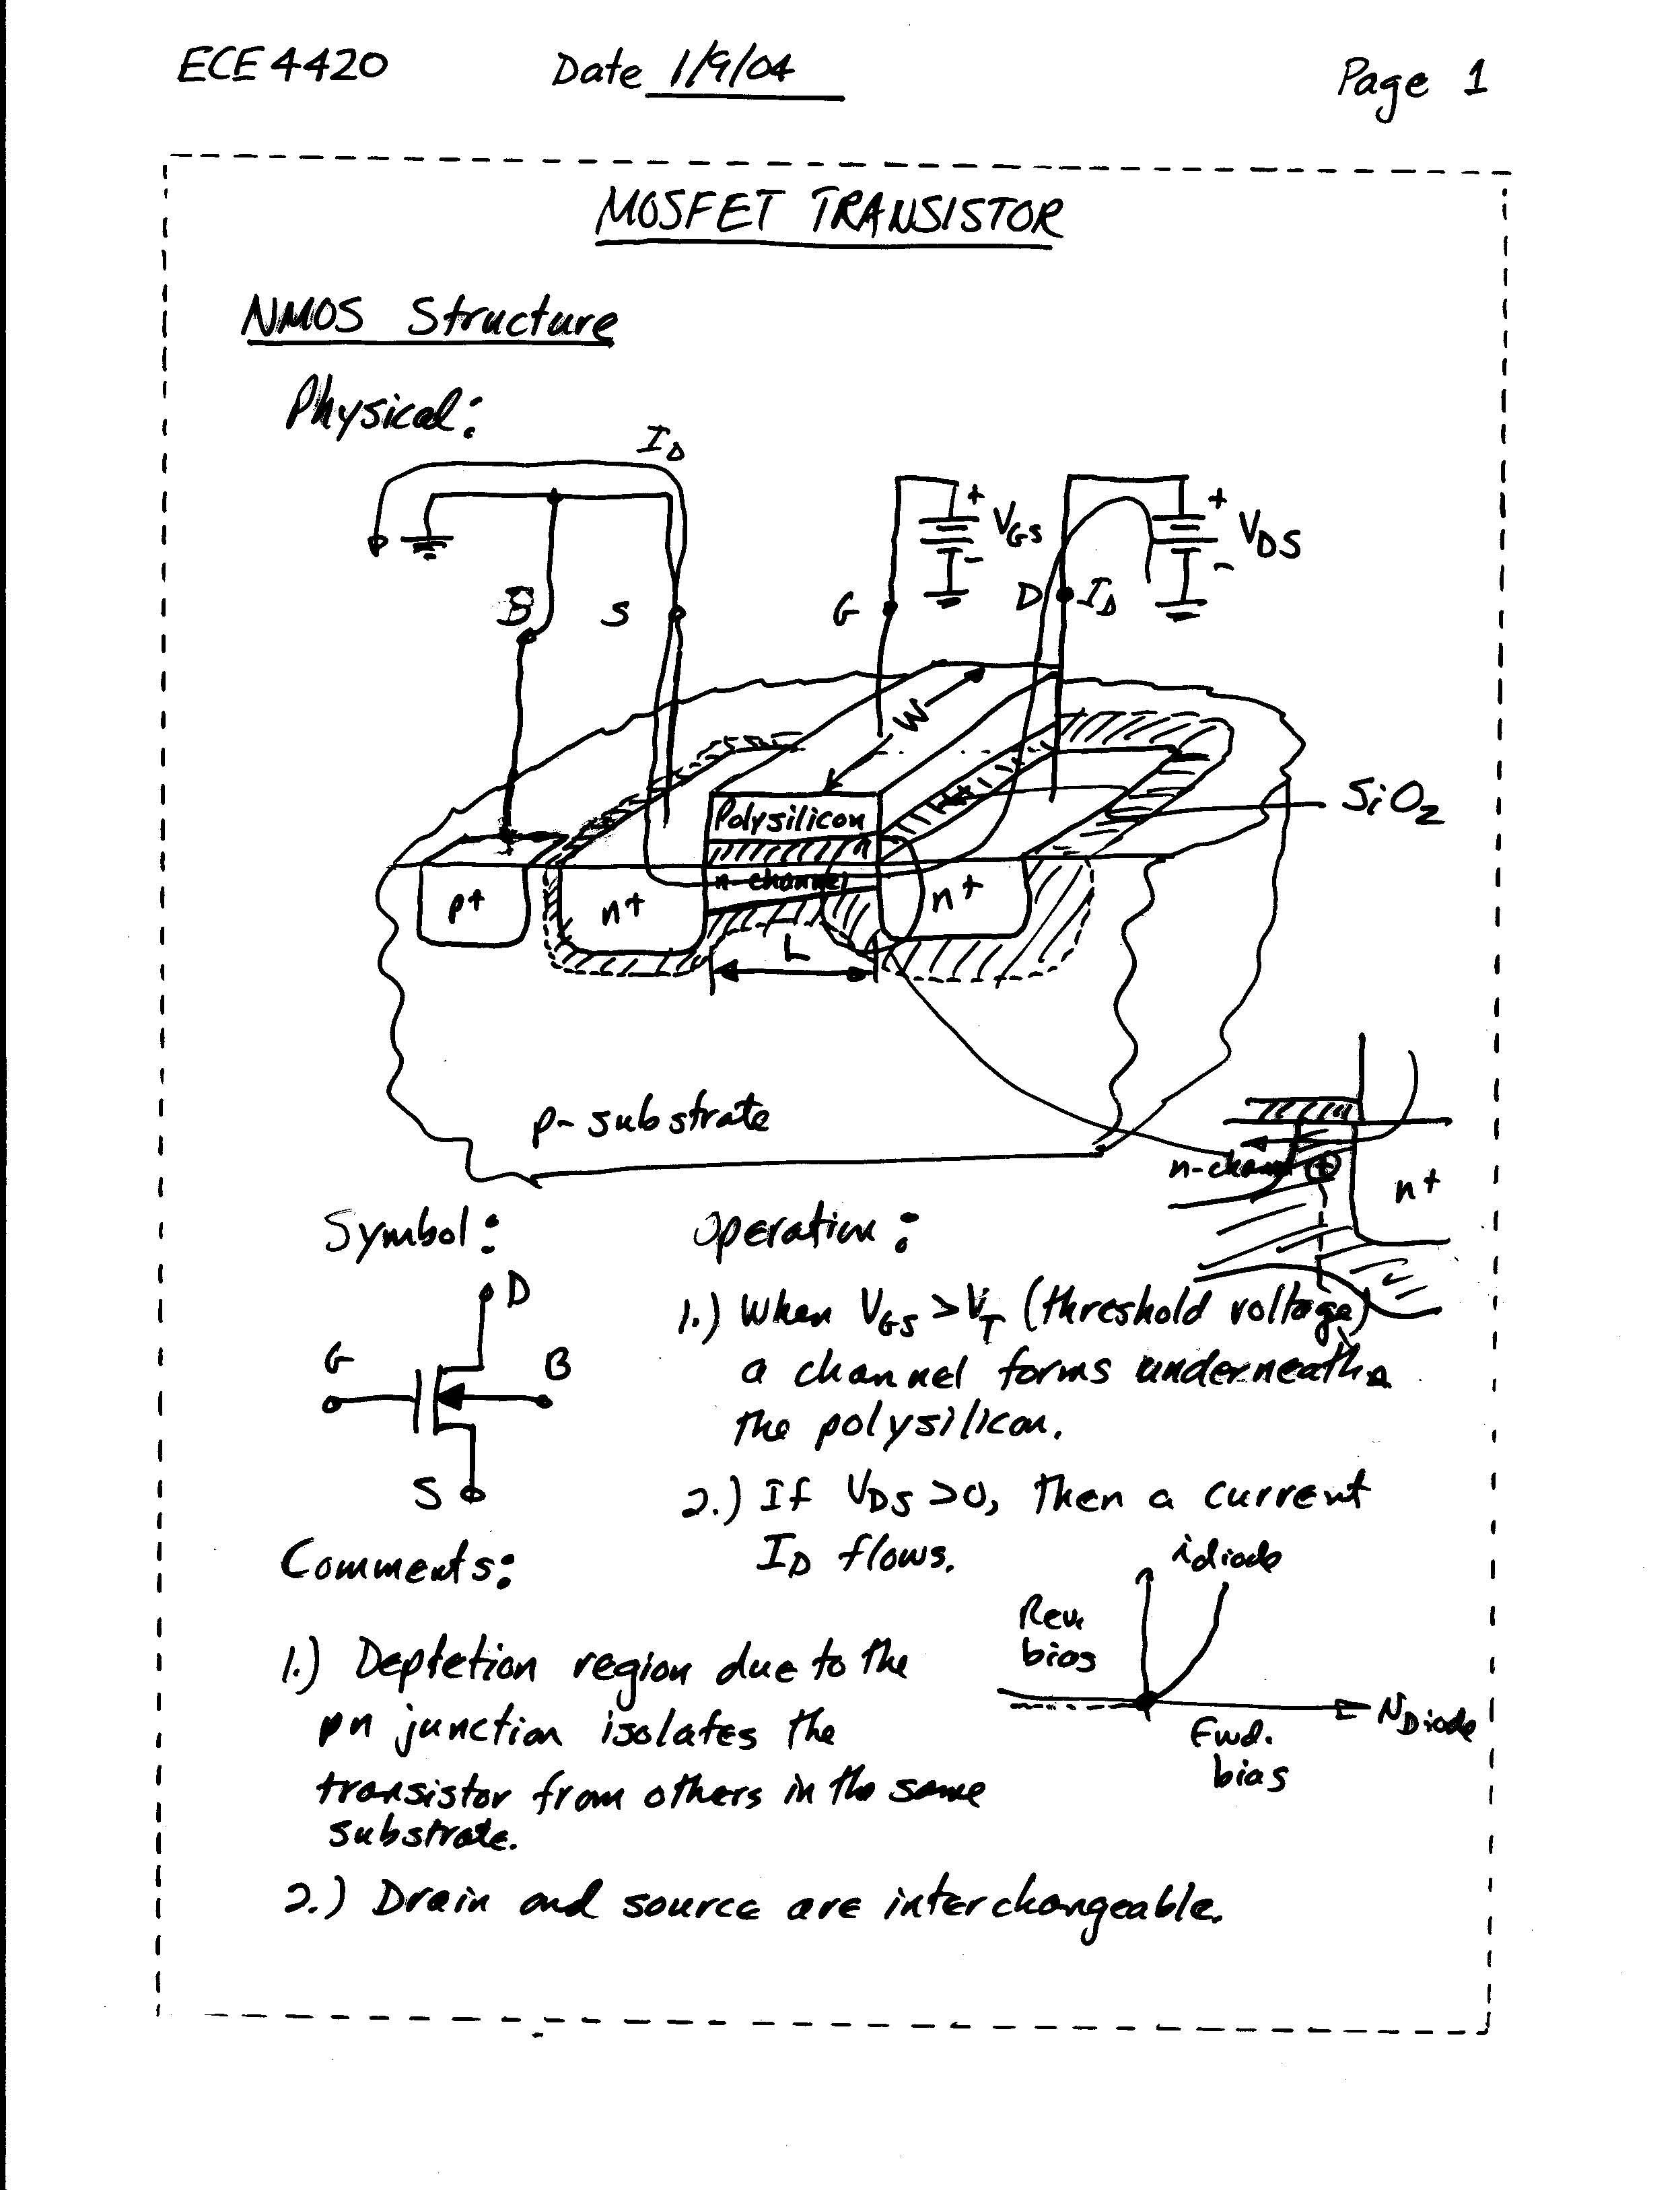 ECE 4420 Date 1/9/04 Page 1
MOSFET TRANSISTOR
NMOS Structure
Physical:
I_D
+ V_GS -
+ V_DS -
B S G D I_D
W
SiO2
Polysilicon
n-channel
p+ n+ n+
L
p- substrate
n-chann
n+
Symbol:
D
G B
S
Operation:
1.) When V_GS > V_T (threshold voltage)
a channel forms underneath
the polysilicon.
2.) If V_DS >0, then a current
I_D flows.
Comments:
1.) Depletion region due to the
pn junction isolates the
transistor from others in the same
substrate.
2.) Drain and source are interchangeable.
i_diode
Rev.
bias
v_Diode
Fwd.
bias